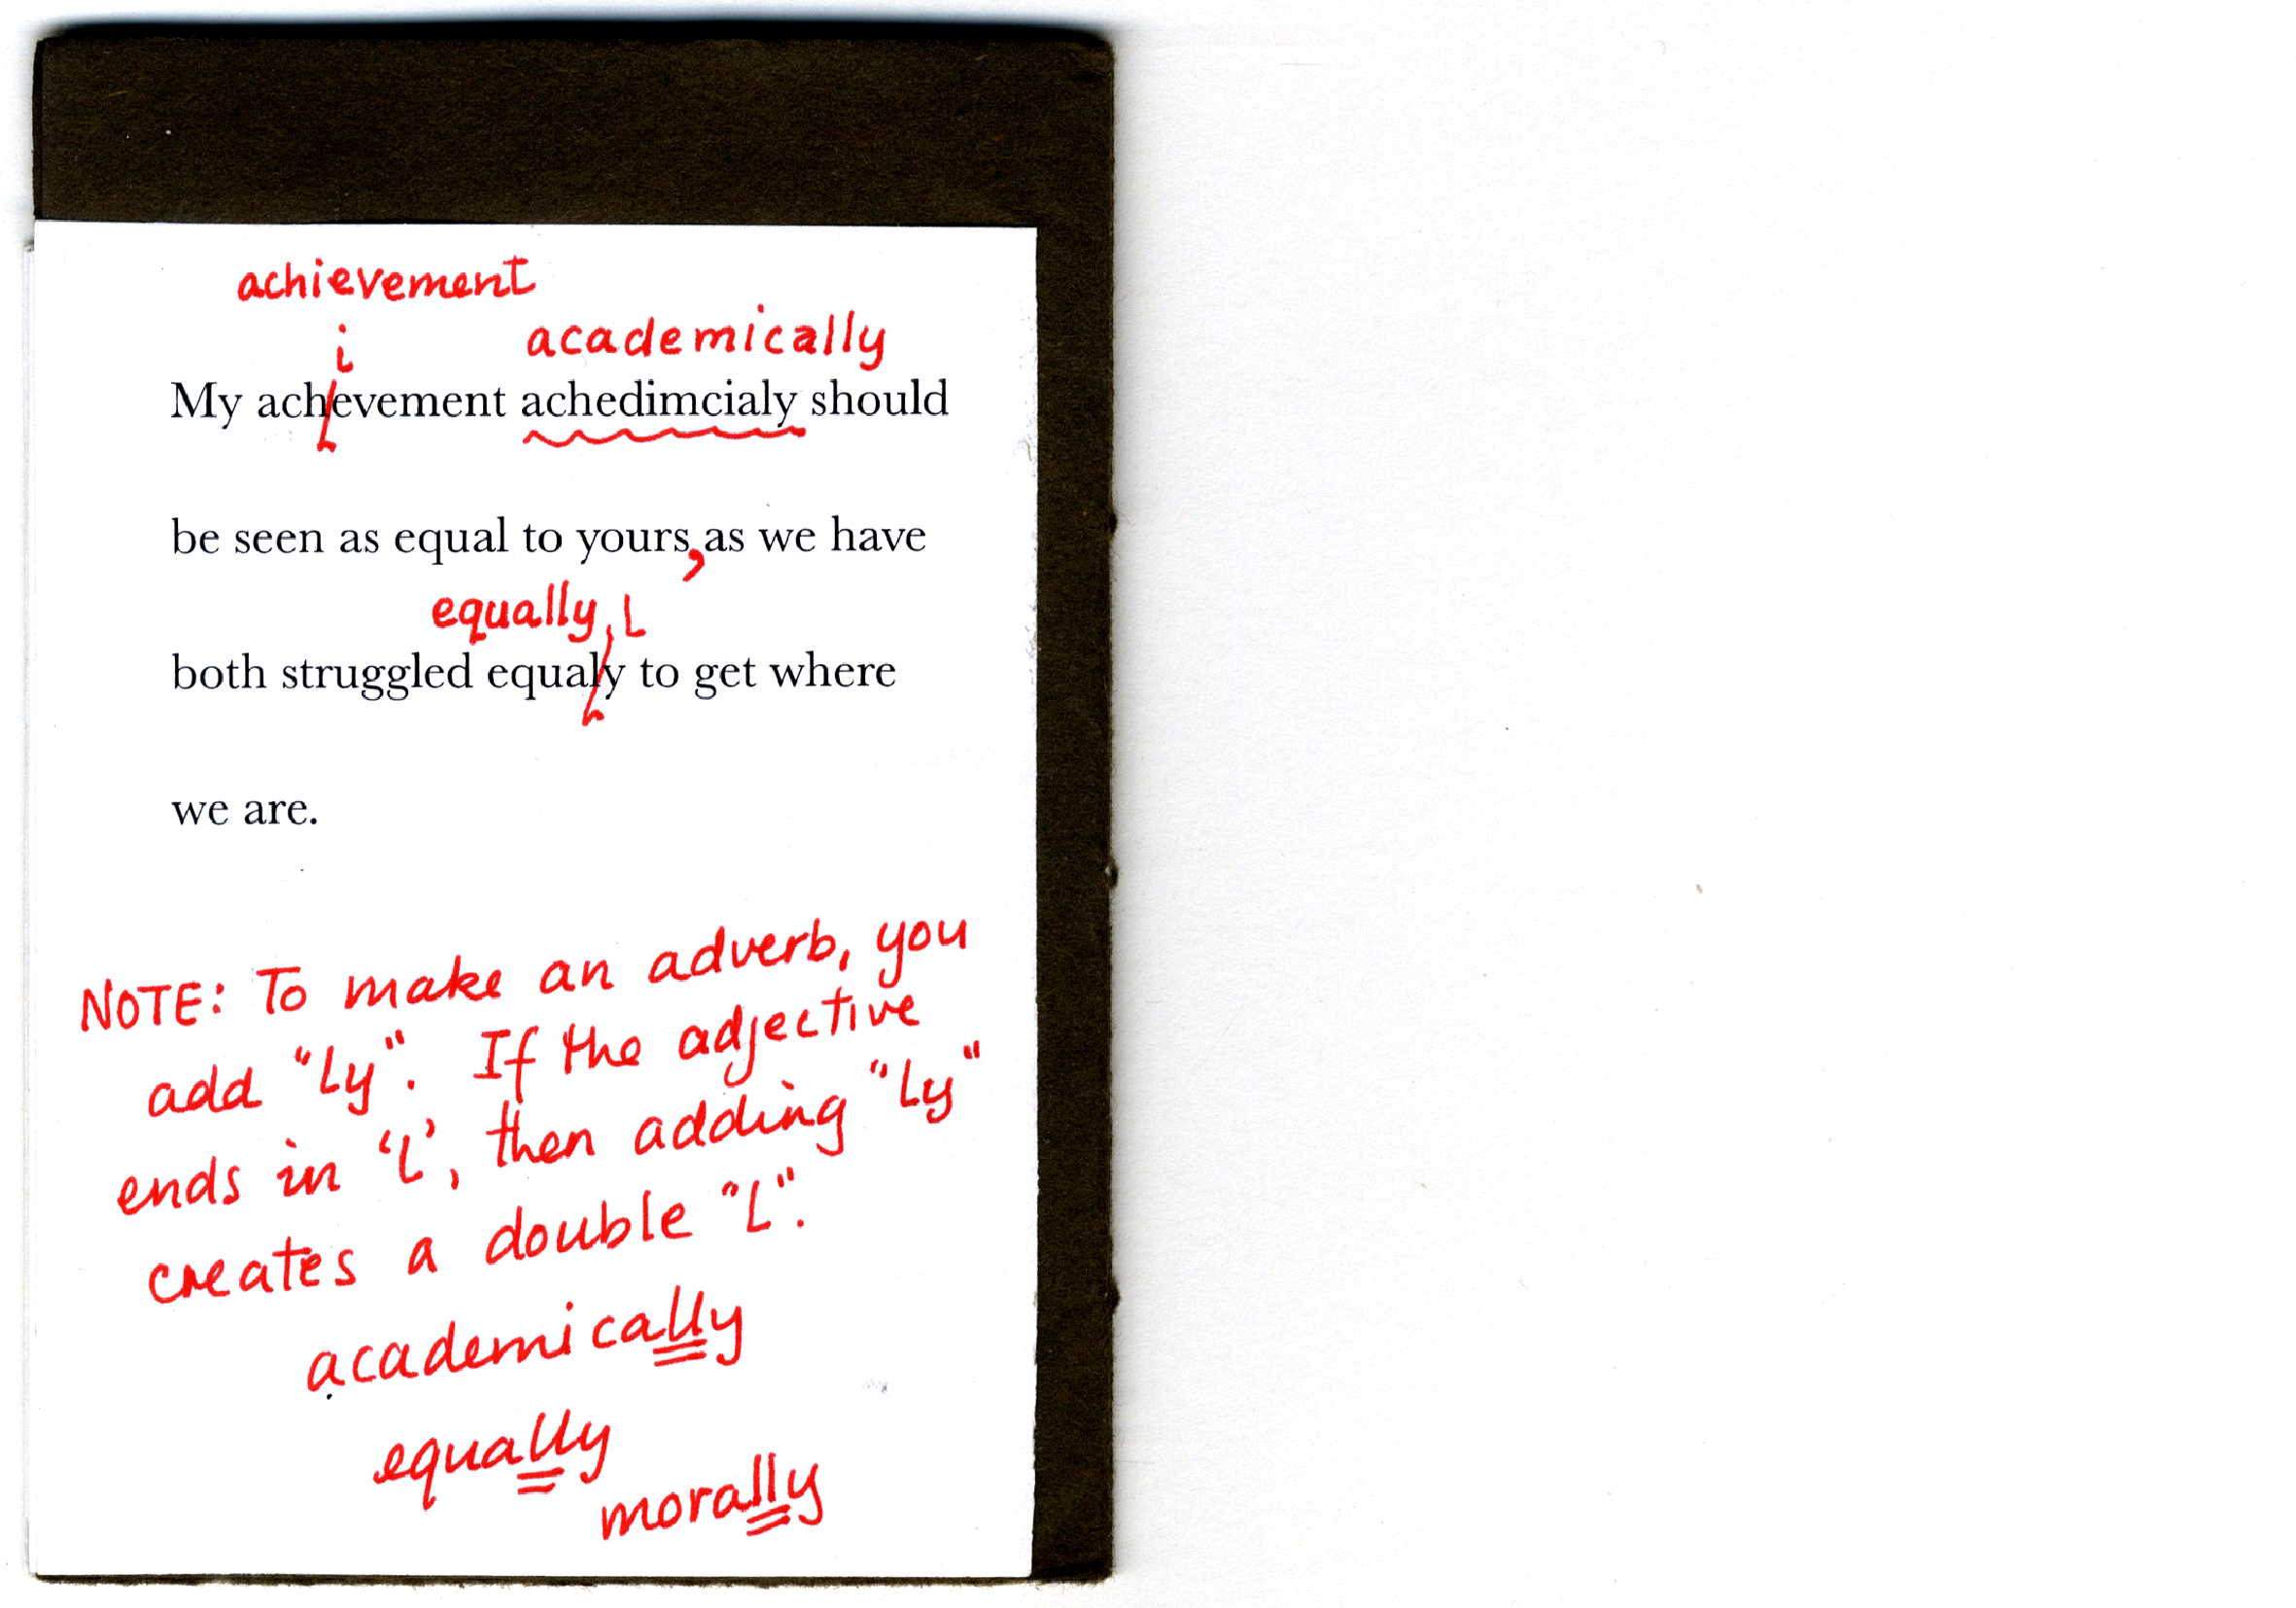 achievement
i academically
My achevement achedimcialy should
be seen as equal to yours, as we have
equally, L
both struggled equaly to get where
we are.
NOTE: To make an adverb, you
add "Ly". If the adjective
ends in 'L', then adding "Ly"
creates a double "L".
academically
equally
morally